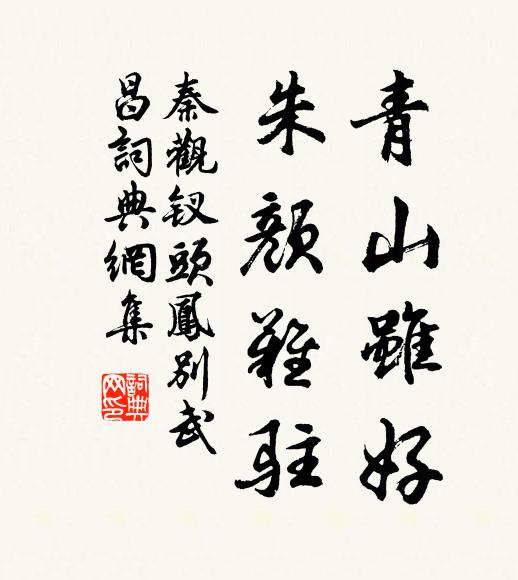 青山雖好
朱顏難駐
秦觀釵頭鳳別武
昌詞典網集
詞典
网印